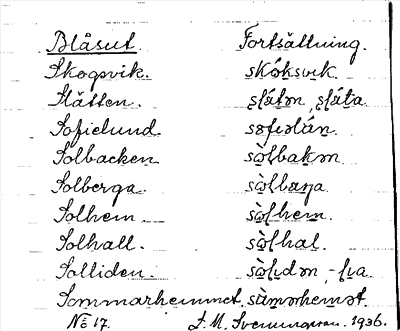 Blåsut. Fortsättning.
Skogsvik. skóksvik.
Slätten. slátən, sláta
Sofielund sofiəlún.
Solbacken sòlbakən
Solberga. sòlbærja
Solhem. sòlhem.
Solhall. sòlhal.
Solliden. sòlidən, -lia.
Sommarhemmet. sùmərhemət.
No 17. 1936.